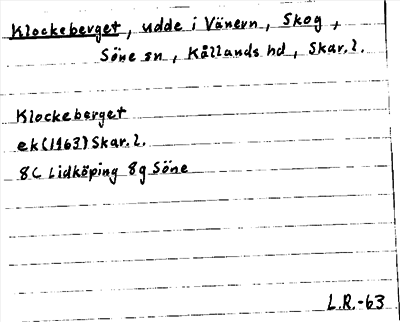 Klockeberget, udde i Vänern, Skog,
Söne sn, Kållands hd, Skar. l.
Klockeberget
ek (1963) Skar. l.
8C Lidköping 8g Söne
L.R.-63